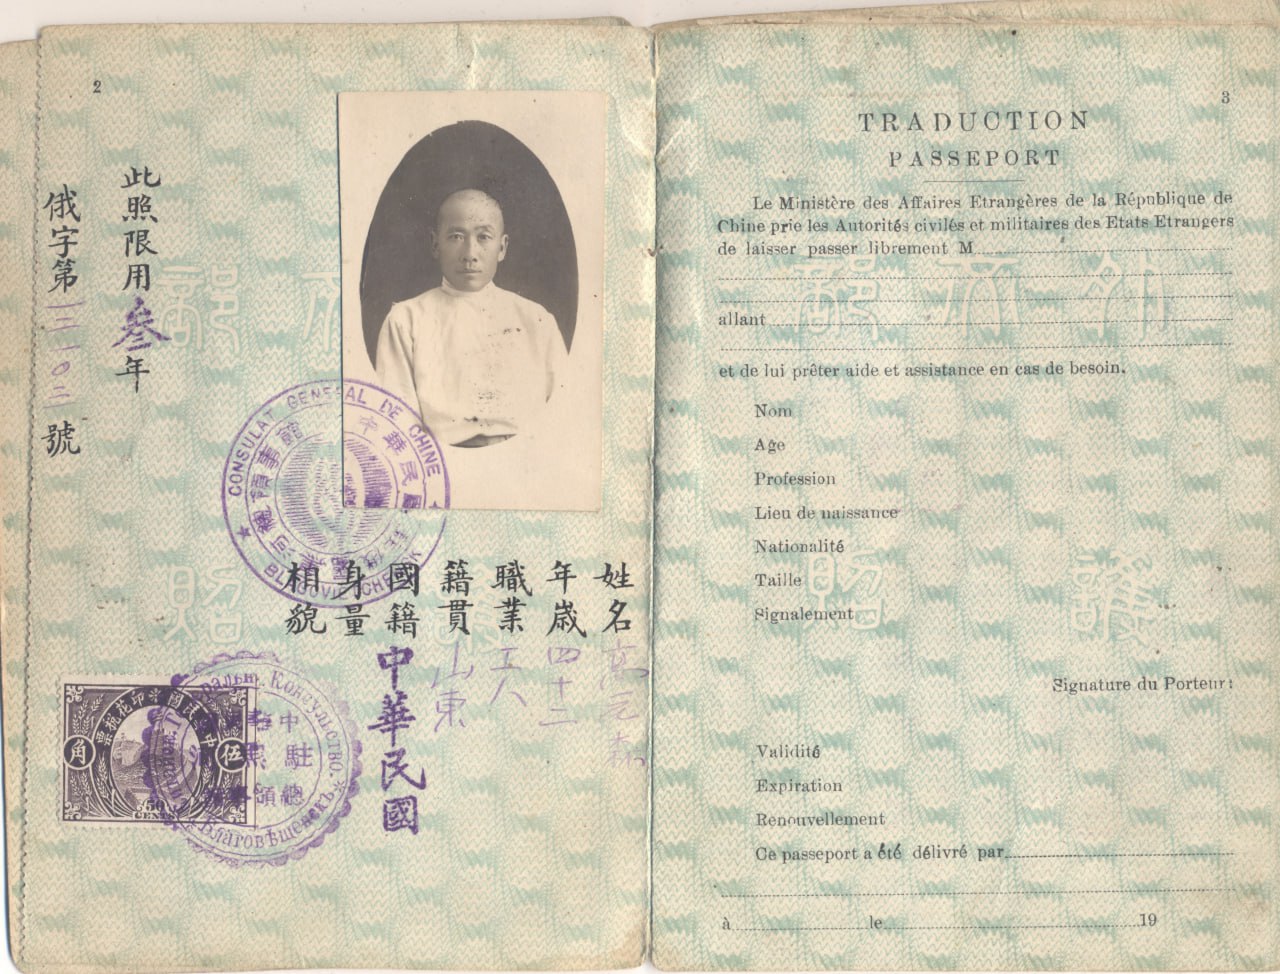 2
此照限用叁年
俄字第三一〇三號
CONSULAT GENERAL DE CHINE
姓名
年歲四十二
職業工人
籍貫山東
國籍中華民國
身量
相貌
中
國
印花稅票
角
伍
50
CENTS
中
駐
總領事
Благовѣщенскъ
3
TRADUCTION
PASSEPORT
Le Ministère des Affaires Etrangères de la République de
Chine prie les Autorités civilés et militaires des Etats Etrangers
de laisser passer librement M
外
部
allant
et de lui prêter aide et assistance en cas de besoin.
Nom
Age
Profession
Lieu de naissance
Nationalité
Taille
Signalement
Signature du Porteur:
Validité
Expiration
Renouvellement
Ce passeport a été délivré par
à le 19